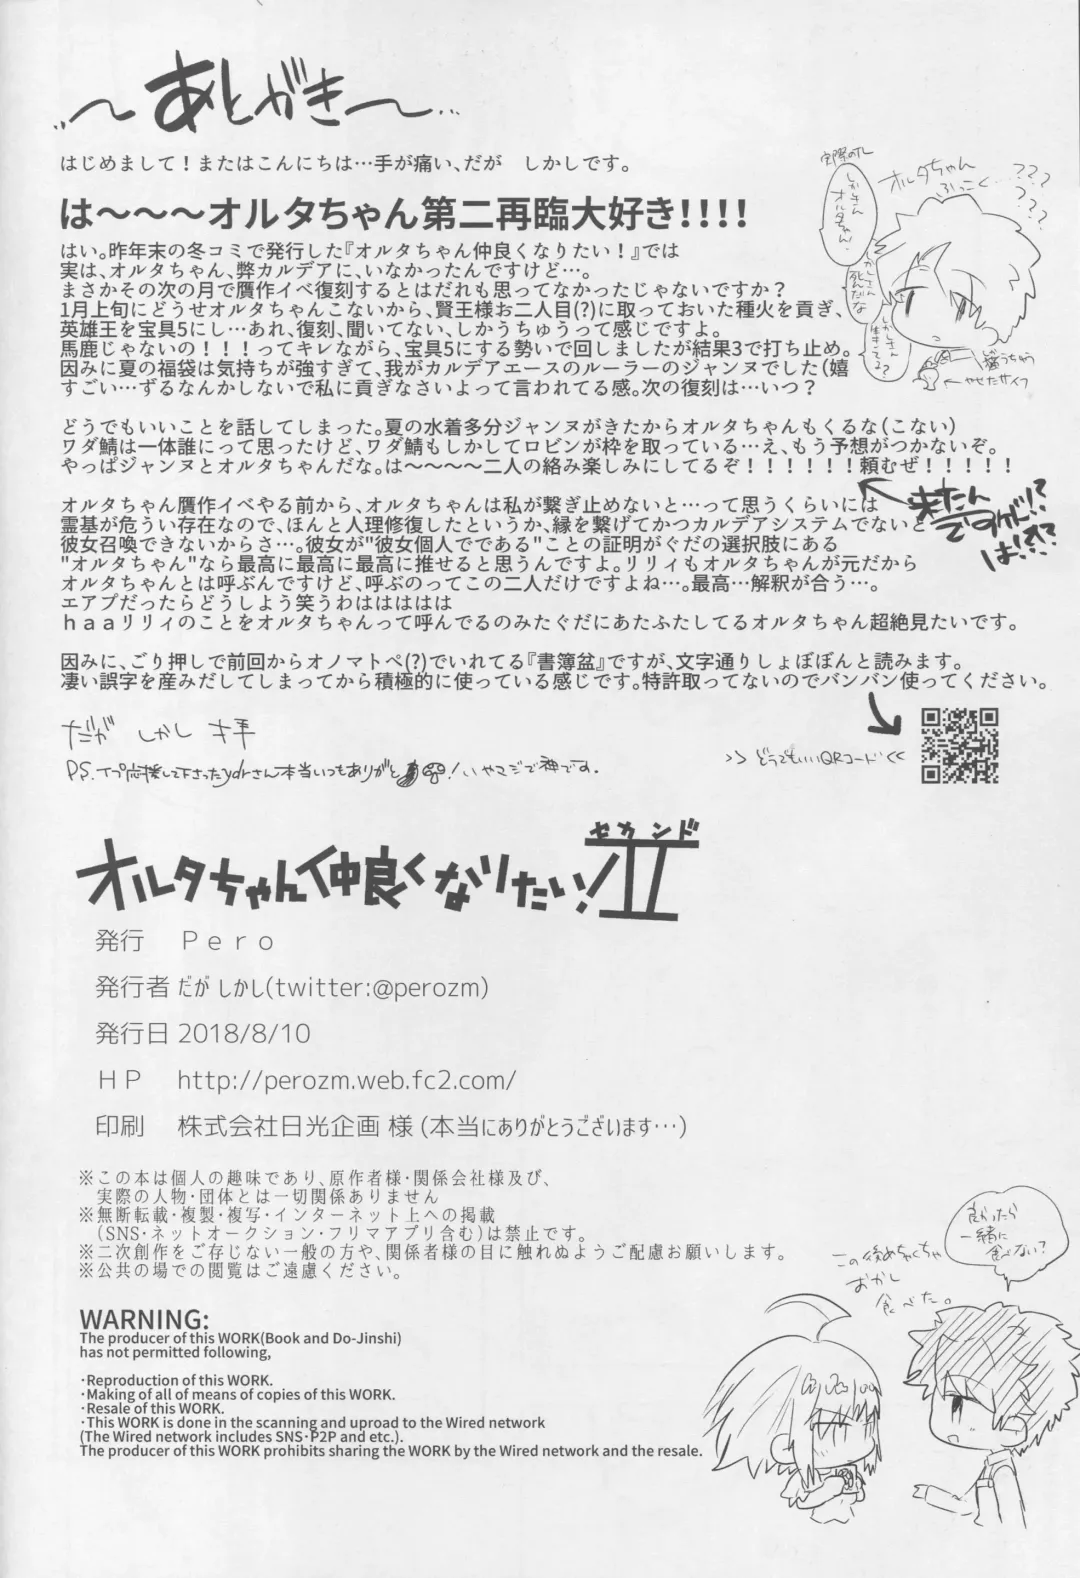 〜あとがき〜
はじめまして！またはこんにちは…手が痛い、だが　しかしです。
は〜〜〜オルタちゃん第二再臨大好き!!!!
はい。昨年末の冬コミで発行した『オルタちゃん仲良くなりたい！』では
実は、オルタちゃん、弊カルデアに、いなかったんですけど…。
まさかその次の月で贋作イベ復刻するとはだれも思ってなかったじゃないですか？
1月上旬にどうせオルタちゃんこないから、賢王様お二人目(?)に取っておいた種火を貢ぎ、
英雄王を宝具5にし…あれ、復刻、聞いてない、しかうちゅうって感じですよ。
馬鹿じゃないの！！！ってキレながら、宝具5にする勢いで回しましたが結果3で打ち止め。
因みに夏の福袋は気持ちが強すぎて、我がカルデアエースのルーラーのジャンヌでした(嬉
すごい…ずるなんかしないで私に貢ぎなさいよって言われてる感。次の復刻は…いつ？
どうでもいいことを話してしまった。夏の水着多分ジャンヌがきたからオルタちゃんもくるな(こない)
ワダ鯖は一体誰にって思ったけど、ワダ鯖もしかしてロビンが枠を取っている…え、もう予想がつかないぞ。
やっぱジャンヌとオルタちゃんだな。は〜〜〜〜二人の絡み楽しみにしてるぞ！！！！！！頼むぜ！！！！！
来たんですけど!!?は!?!?
オルタちゃん贋作イベやる前から、オルタちゃんは私が繋ぎ止めないと…って思うくらいには
霊基が危うい存在なので、ほんと人理修復したというか、縁を繋げてかつカルデアシステムでないと
彼女召喚できないからさ…。彼女が"彼女個人でである"ことの証明がぐだの選択肢にある
"オルタちゃん"なら最高に最高に最高に推せると思うんですよ。リリィもオルタちゃんが元だから
オルタちゃんとは呼ぶんですけど、呼ぶのってこの二人だけですよね…。最高…解釈が合う…。
エアプだったらどうしよう笑うわはははははは
ｈａａリリィのことをオルタちゃんって呼んでるのみたぐだにあたふたしてるオルタちゃん超絶見たいです。
因みに、ごり押しで前回からオノマトペ(?)でいれてる『書簿盆』ですが、文字通りしょぼぼんと読みます。
凄い誤字を産みだしてしまってから積極的に使っている感じです。特許取ってないのでバンバン使ってください。
だが しかし 拝
>> どうでもいいQRコード <<
P.S.イプ応援して下さったydrさん本当いつもありがと!いやマジで神です。
実際のオレ
オルタちゃん
ふっこく…
???
???
しかさんオルタちゃん、
しかさん死んだな
しかさん生きてる?
猫うちゅう
←やせたサイフ
オルタちゃん仲良くなりたい!II
セカンド
発行　Ｐｅｒｏ
発行者 だが しかし(twitter:@perozm)
発行日 2018/8/10
ＨＰ　http://perozm.web.fc2.com/
印刷　株式会社日光企画 様 (本当にありがとうございます…)
※この本は個人の趣味であり、原作者様・関係会社様及び、
実際の人物・団体とは一切関係ありません
※無断転載・複製・複写・インターネット上への掲載
(SNS・ネットオークション・フリマアプリ含む)は禁止です。
※二次創作をご存じない一般の方や、関係者様の目に触れぬようご配慮お願いします。
※公共の場での閲覧はご遠慮ください。
WARNING:
The producer of this WORK(Book and Do-Jinshi)
has not permitted following,
・Reproduction of this WORK.
・Making of all of means of copies of this WORK.
・Resale of this WORK.
・This WORK is done in the scanning and uproad to the Wired network
(The Wired network includes SNS・P2P and etc.).
The producer of this WORK prohibits sharing the WORK by the Wired network and the resale.
良かったら
一緒に
食べない?
この後めちゃくちゃ
おかし
食べた。